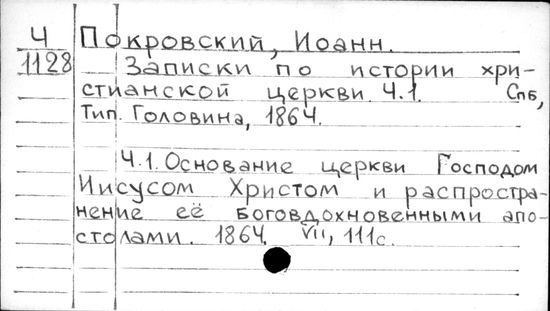 Ч Покровский, Иоанн.
1128 Записки по истории хри-
стианской церкви. Ч.1. Спб,
Тип. Головина, 1864.
Ч.1. Основание церкви Господом
Иисусом Христом и распростра-
нение её боговдохновенными апо-
столами. 1864. VII, 111с.